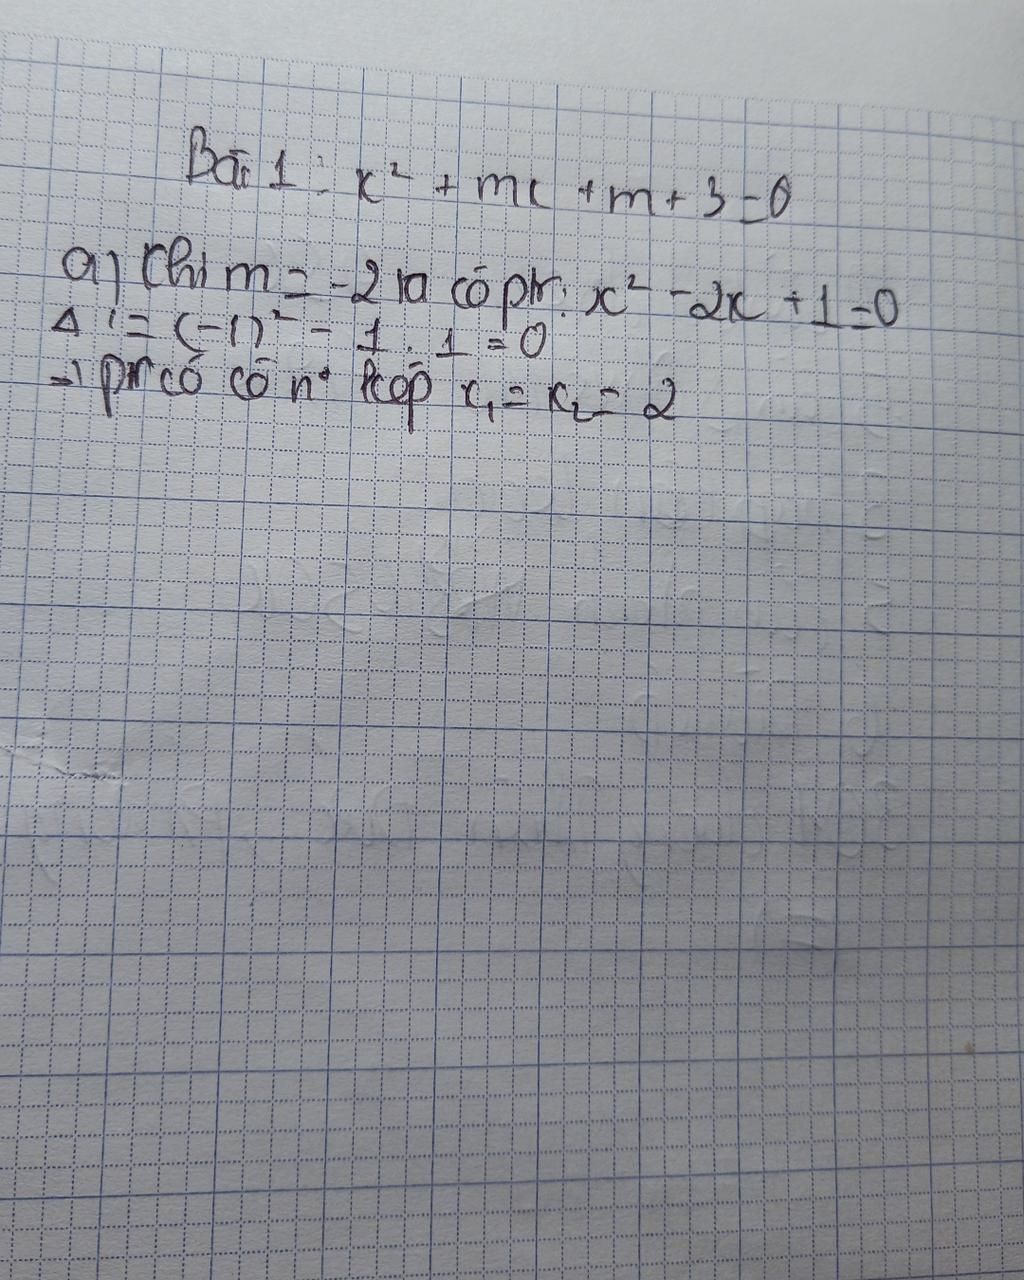 Bài 1: x² + mx + m + 3 = 0
a) Khi m = -2 ta có ptr: x² - 2x + 1 = 0
Δ' = (-1)² - 1 . 1 = 0
=> ptr có có n° kép x₁ = x₂ = 2